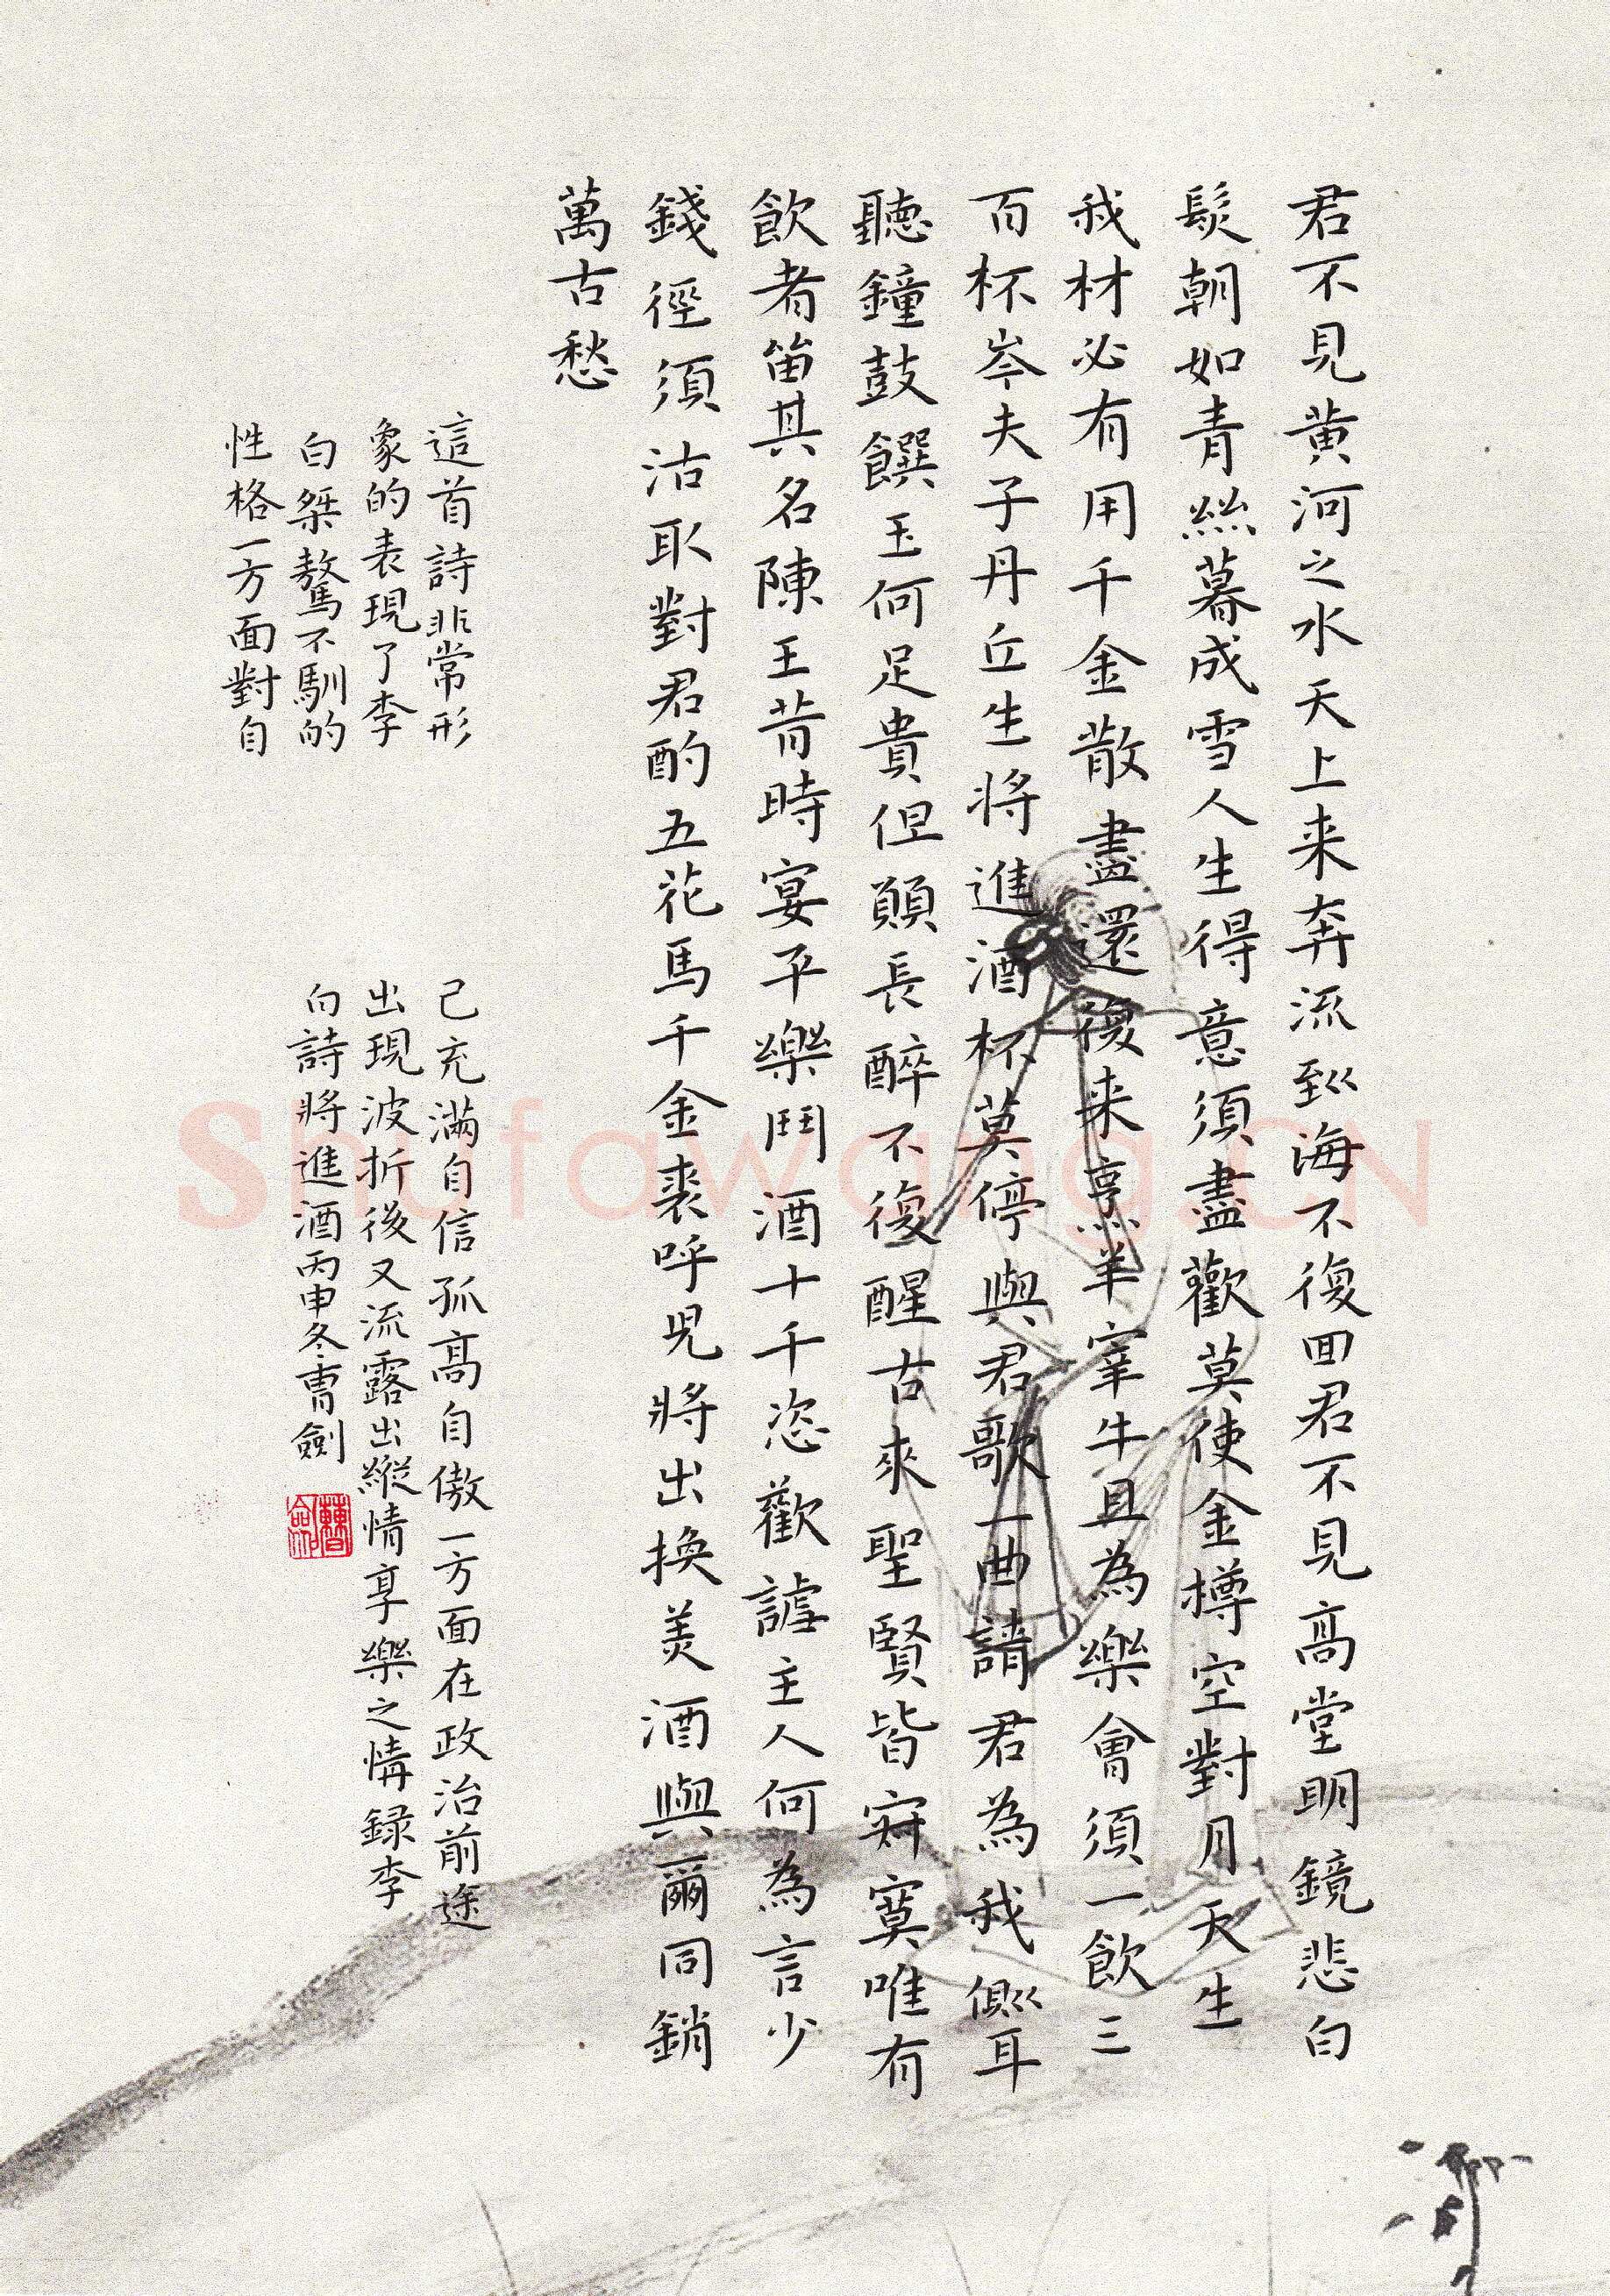 君不見黄河之水天上来奔流到海不復囬君不見高堂明鏡悲白
髮朝如青絲暮成雪人生得意須盡歡莫使金樽空對月天生
我材必有用千金散盡還復来烹羊宰牛且為樂會須一飲三
百杯岑夫子丹丘生將進酒杯莫停與君歌一曲請君為我側耳
聽鐘鼓饌玉何足貴但願長醉不復醒古來聖賢皆寂寞唯有
飲者留其名陳王昔時宴平樂鬥酒十千恣歡謔主人何為言少
錢徑須沽取對君酌五花馬千金裘呼兒將出換美酒與爾同銷
萬古愁
這首詩非常形
象的表現了李
白桀驁不馴的
性格一方面對自
己充滿自信孤高自傲一方面在政治前途
出現波折後又流露出縱情享樂之情録李
白詩將進酒丙申冬曹劍
曹劍
Shufawang.CN